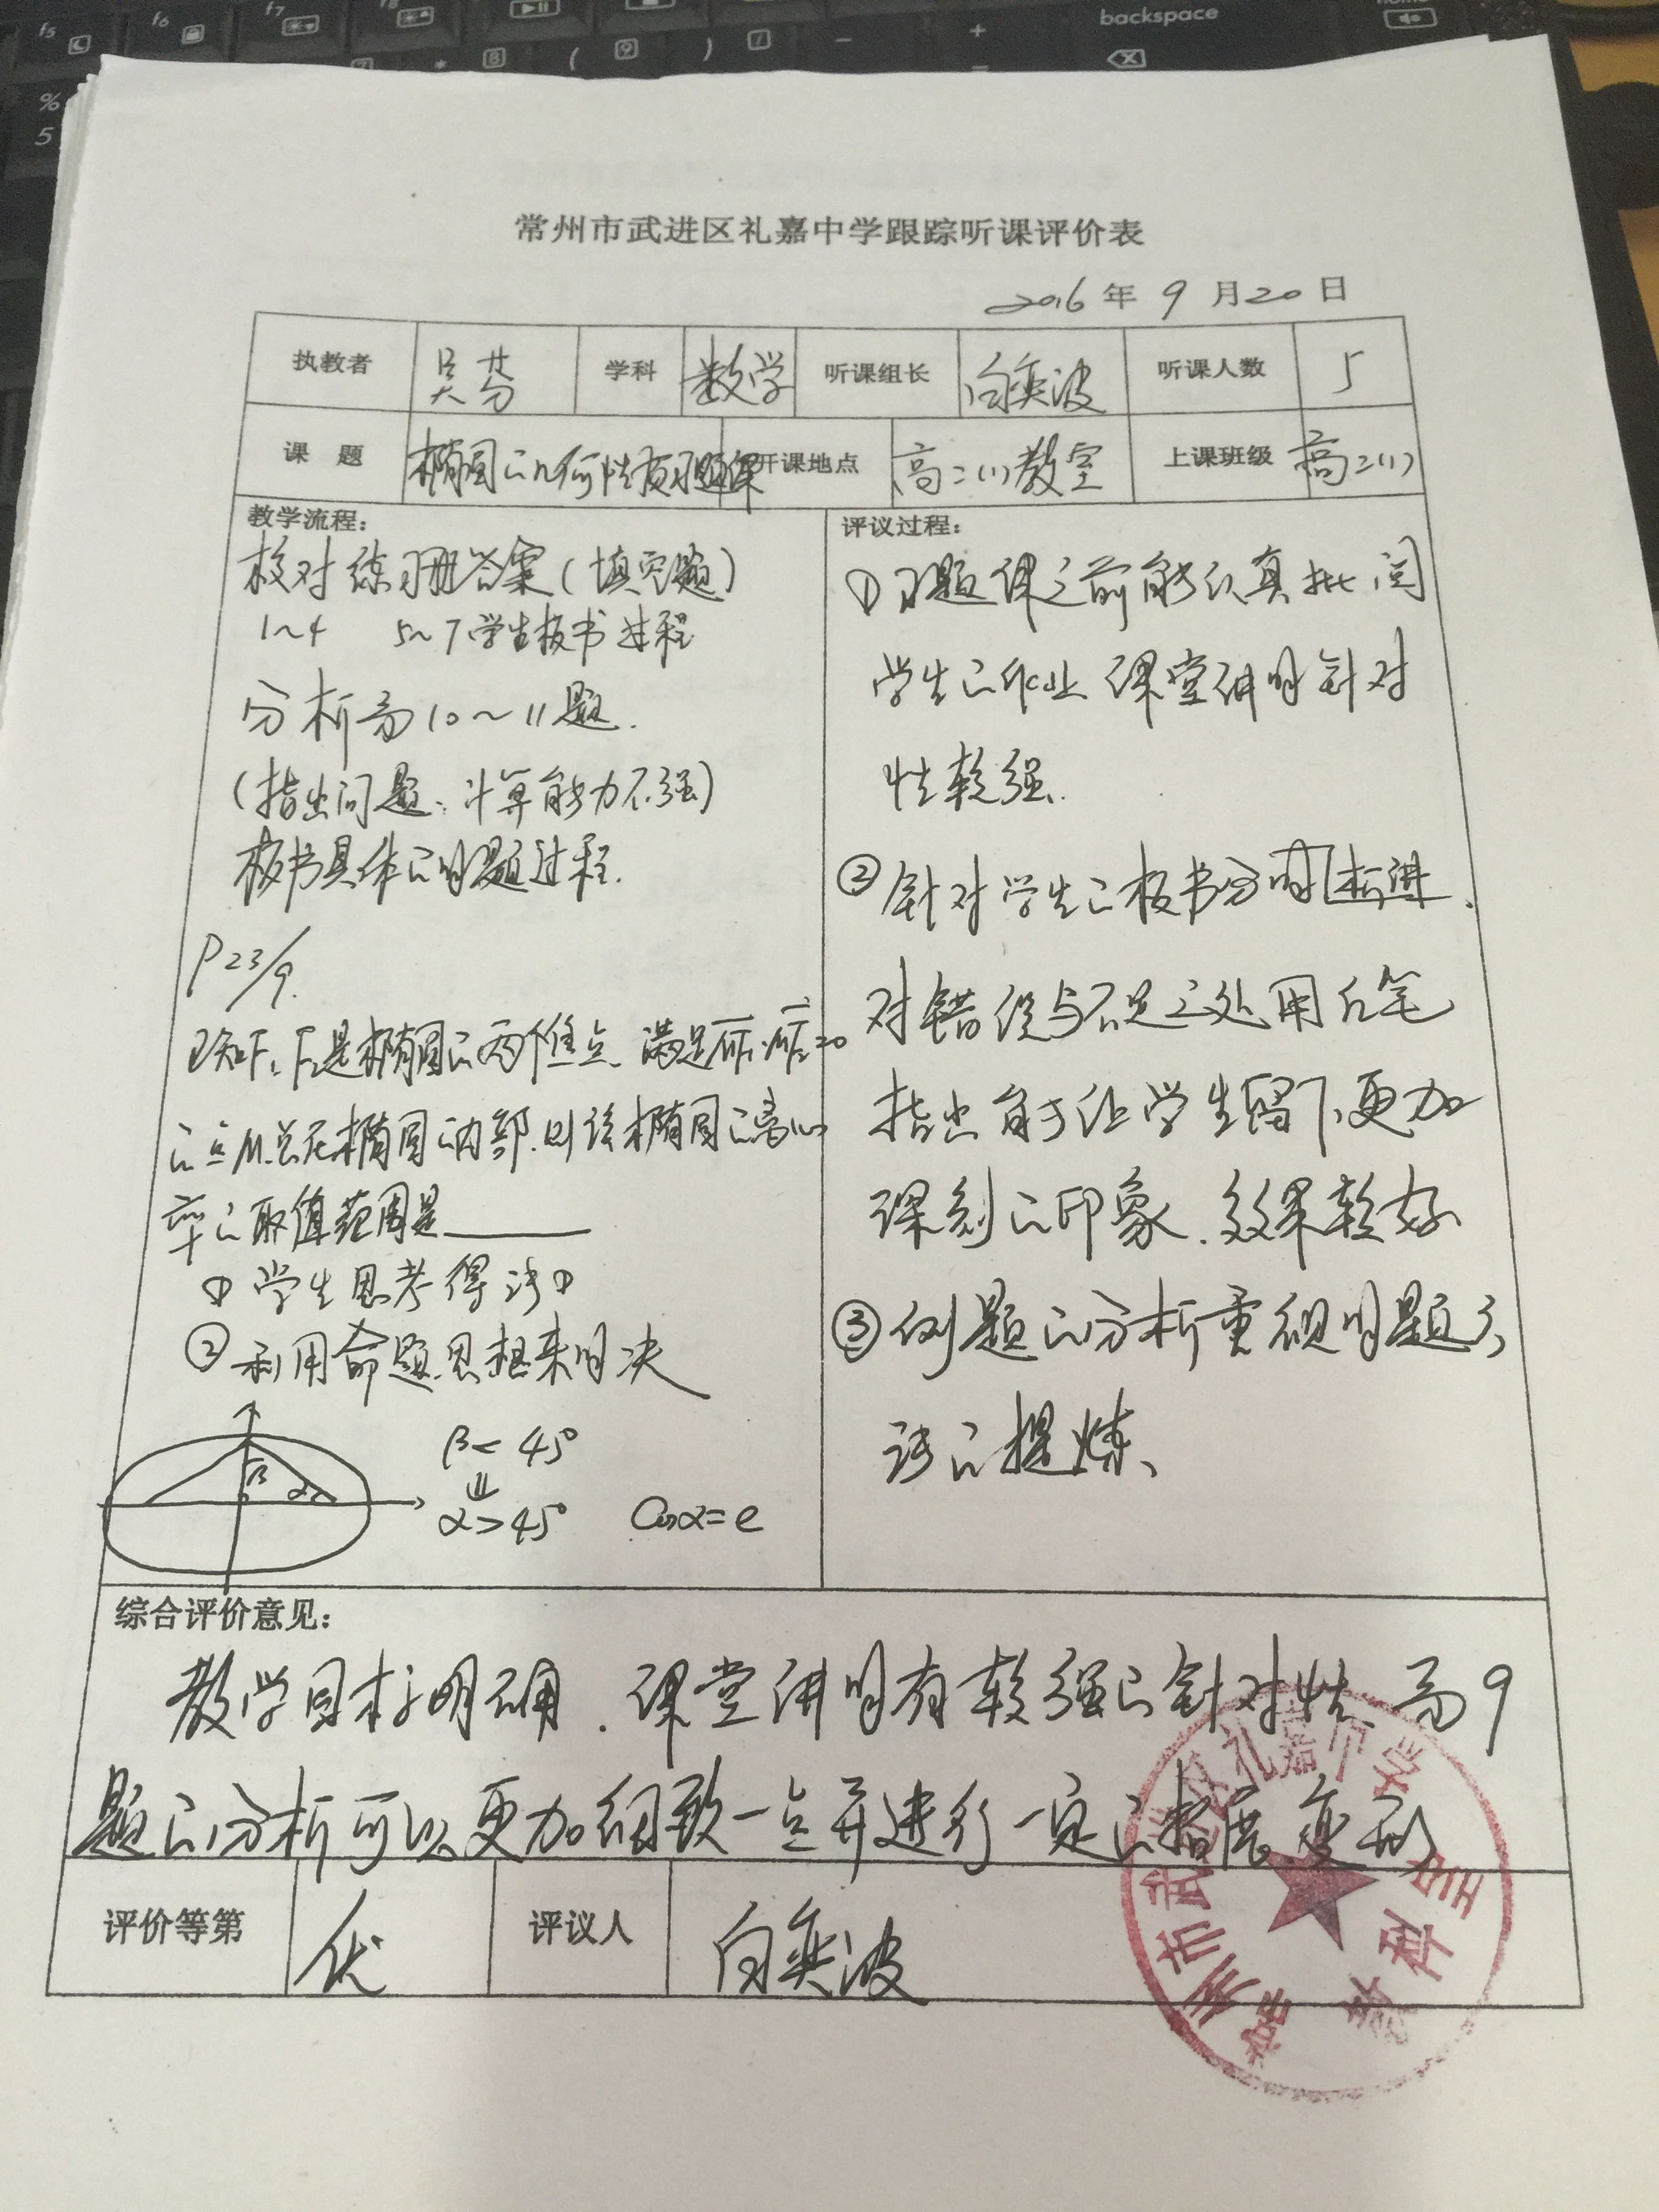 f5 f6 f7 f8 backspace home
% 5 * 8 ( 9 ) / - + =
常州市武进区礼嘉中学跟踪听课评价表
2016年9月20日
执教者 吴芬 学科 数学 听课组长 白奕波 听课人数 5
课题 椭圆的几何性质习题课 开课地点 高二(1)教室 上课班级 高二(1)
教学流程:
核对练习册答案(填空题)
1~4 5~7学生板书过程
分析第10~11题.
(指出问题:计算能力不强)
板书具体的解题过程.
P23/9.
已知F₁、F₂是椭圆的两个焦点.满足MF₁·MF₂=0
的点M总在椭圆的内部.则该椭圆的离心
率的取值范围是
① 学生思考得法①
② 利用命题思想来解决
β α
β< 45°
⇓
α>45° cosα=e
评议过程:
①习题课之前能认真批阅
学生的作业 课堂讲解针对
性较强.
②针对学生的板书分解
对错误与不足之处用红笔
指出能让学生留下更加
深刻的印象.效果较好
③例题的分析重视解题方
法的提炼、
综合评价意见:
教学目标明确.课堂讲解有较强的针对性.第9
题的分析可以更加细致一点并进行一定的拓展变形
评价等第 优 评议人 白奕波
常州市武进区礼嘉中学
教科室